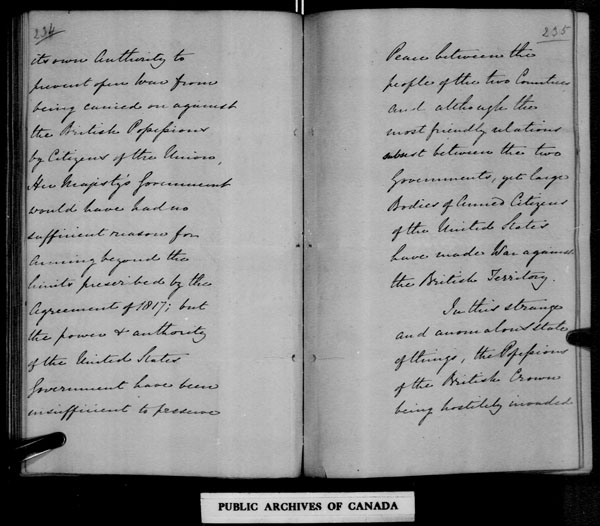 234
its own Authority to
prevent open War from
being carried on against
the British Possessions
by Citizens of the Union,
Her Majesty's Government
would have had no
sufficient reason for
arming beyond the
limits prescribed by the
Agreement of 1817; but
the power & authority
of the United States
Government have been
insufficient to preserve
235
Peace between the
people of the two Countries
and although the
most friendly relations
subsist between the two
Governments, yet large
Bodies of Armed Citizens
of the United States
have made War against
the British Territory.
In this strange
and anomalous state
of things, the Possessions
of the British Crown
being hostilely invaded
PUBLIC ARCHIVES OF CANADA